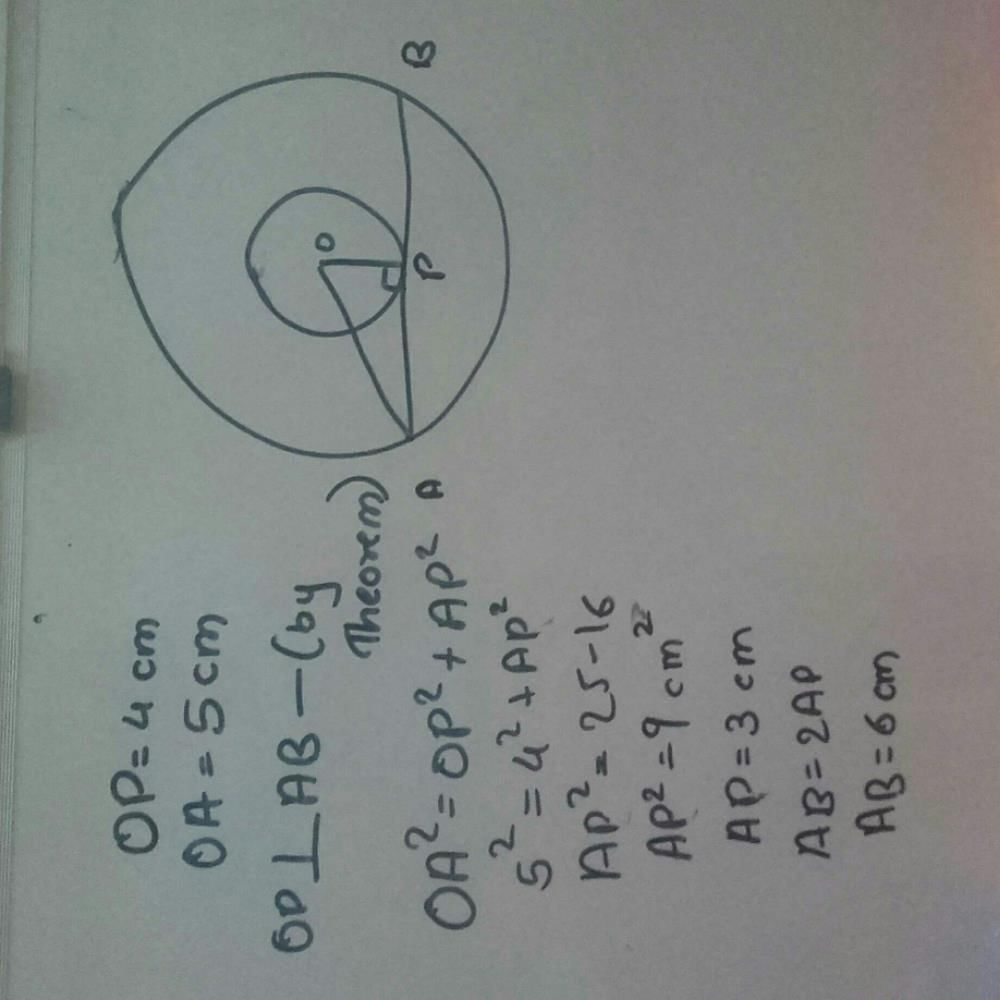 OP = 4 cm
OA = 5 cm
OP ⊥ AB — (by
Theorem)
OA² = OP² + AP²
5² = 4² + AP²
AP² = 25 - 16
AP² = 9 cm²
AP = 3 cm
AB = 2AP
AB = 6 cm
O
A
P
B